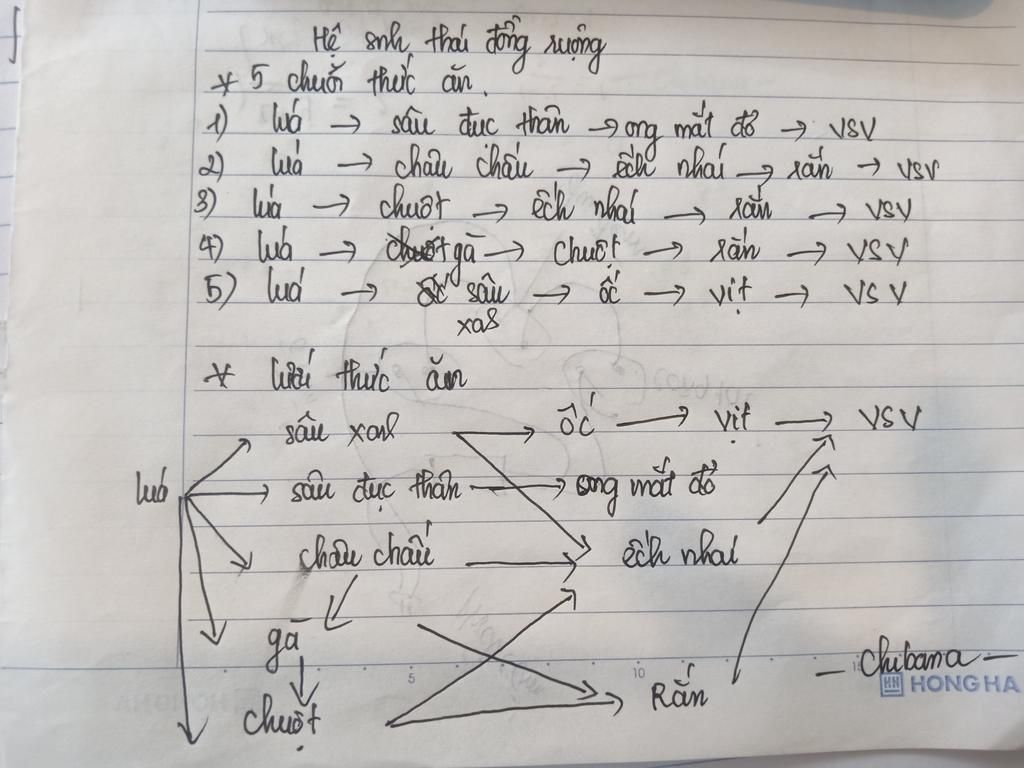 Hệ snh thái đồng ruộng
* 5 chuỗi thức ăn.
1) luá → sâu đục thân → ong mắt đỏ → VSV
2) luá → châu chấu → ếch nhái → rắn → VSV
3) lúa → chuột → ếch nhái → rắn → VSV
4) luá → gà → chuột → rắn → VSV
5) luá → sâu → ốc → vịt → VSV
xah
* lưới thức ăn
sâu xanh → ốc → vịt → VSV
luá sâu đục thân → ong mắt đỏ
châu chấu ếch nhái
gà
chuột Rắn
- Chibana -
HONG HA
5 10